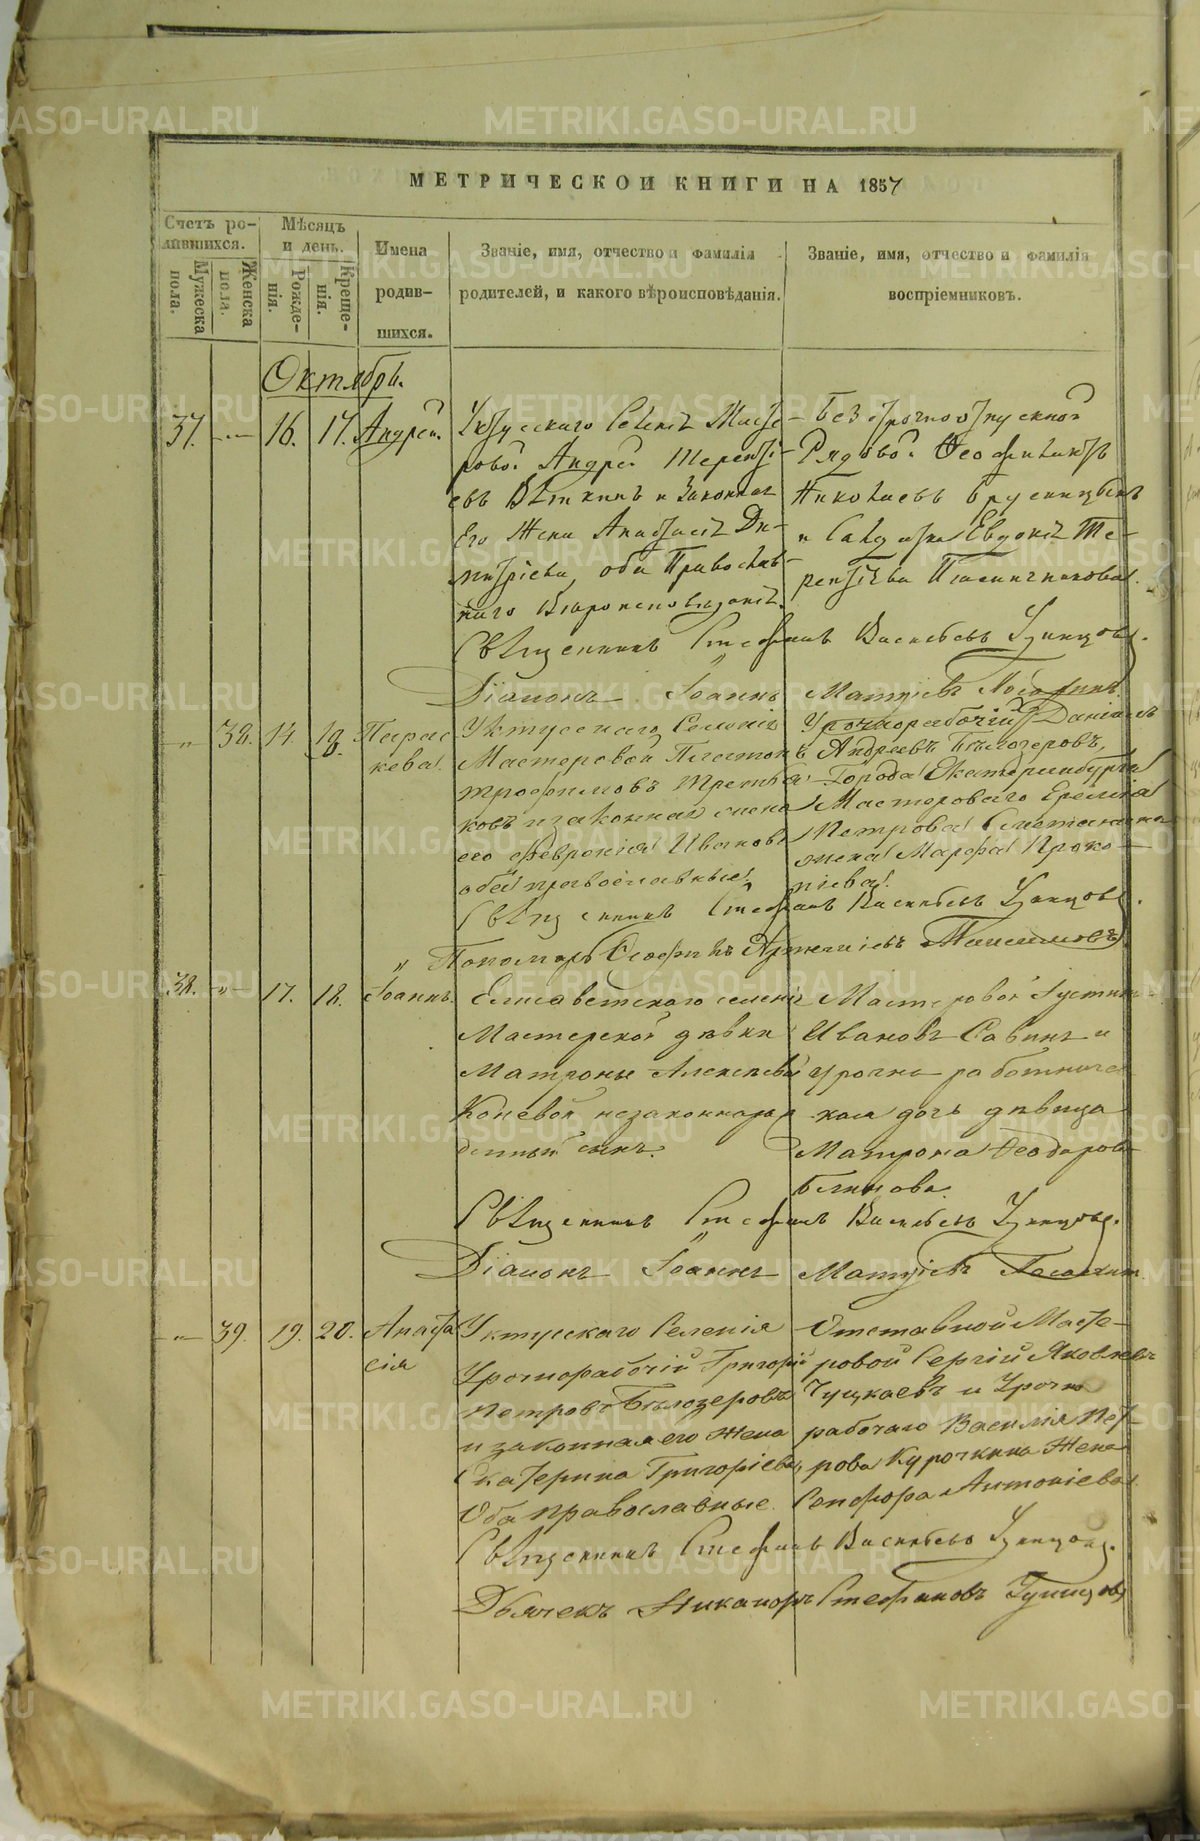 МЕТРИЧЕСКОЙ КНИГИ НА 1857
Счетъ ро-
дившихся.
Мужеска пола.
Женска пола.
Мѣсяцъ
и день.
Рожде-
нія.
Креще-
нія.
Имена
родив-
шихся.
Званіе, имя, отчество и фамилія
родителей, и какого вѣроисповѣданія.
Званіе, имя, отчество и фамилія
воспріемниковъ.
Октябрь.
37. 16. 17. Андрей.
Уктусскаго Селенія Масте-
ровой Андрей Теренті-
евъ Вяткинъ и Законная
Его Жена Анастасія Ди-
митріева, оба Православ-
наго Вѣроисповѣданія.
Безсрочноотпускной
Рядовой Феофилактъ
Николаевъ Брусницынъ
и Солдатка Евдокія Те-
рентіева
Священникъ Стефанъ Васильевъ
Діаконъ Іоаннъ
38. 14. 18. Парас
кева.
Уктусскаго Селенія
Мастеровой Платонъ
Трофимовъ Третья
ковъ и законная жена
его Феврокія Иванова
оба православные.
Урочнорабочій Даніилъ
Андреевъ Бѣлозеровъ,
Города Екатеринбурга
Мастероваго Еремія
Петрова Сметанина
жена Марфа Проко-
піева.
Священникъ Стефанъ Васильевъ
Пономарь
38. 17. 18. Іоаннъ.
Елисаветскаго селенія
Мастерской дѣвки
Матроны Алексѣевой
Коневой незаконнорож
денный сынъ.
Мастеровой Густинъ
Ивановъ Савинъ и
урочно работниче
ская дочь дѣвица
Матрона Феодорова
Блинова.
Священникъ Стефанъ Васильевъ
Діаконъ Іоаннъ
39. 19. 20. Анаста
сія
Уктусскаго Селенія
Урочнорабочій Григорій
Петровъ Бѣлозеровъ
и законная его Жена
Екатерина Григоріева,
Оба православные.
Отставной Масте-
ровой Сергій Яковлевъ
Чуцкаевъ и Урочно
рабочаго Василія Пет
рова Курочкина Жена
Антоніева.
Священникъ Стефанъ Васильевъ
Дьячекъ Никаноръ Стефановъ
METRIKI.GASO-URAL.RU